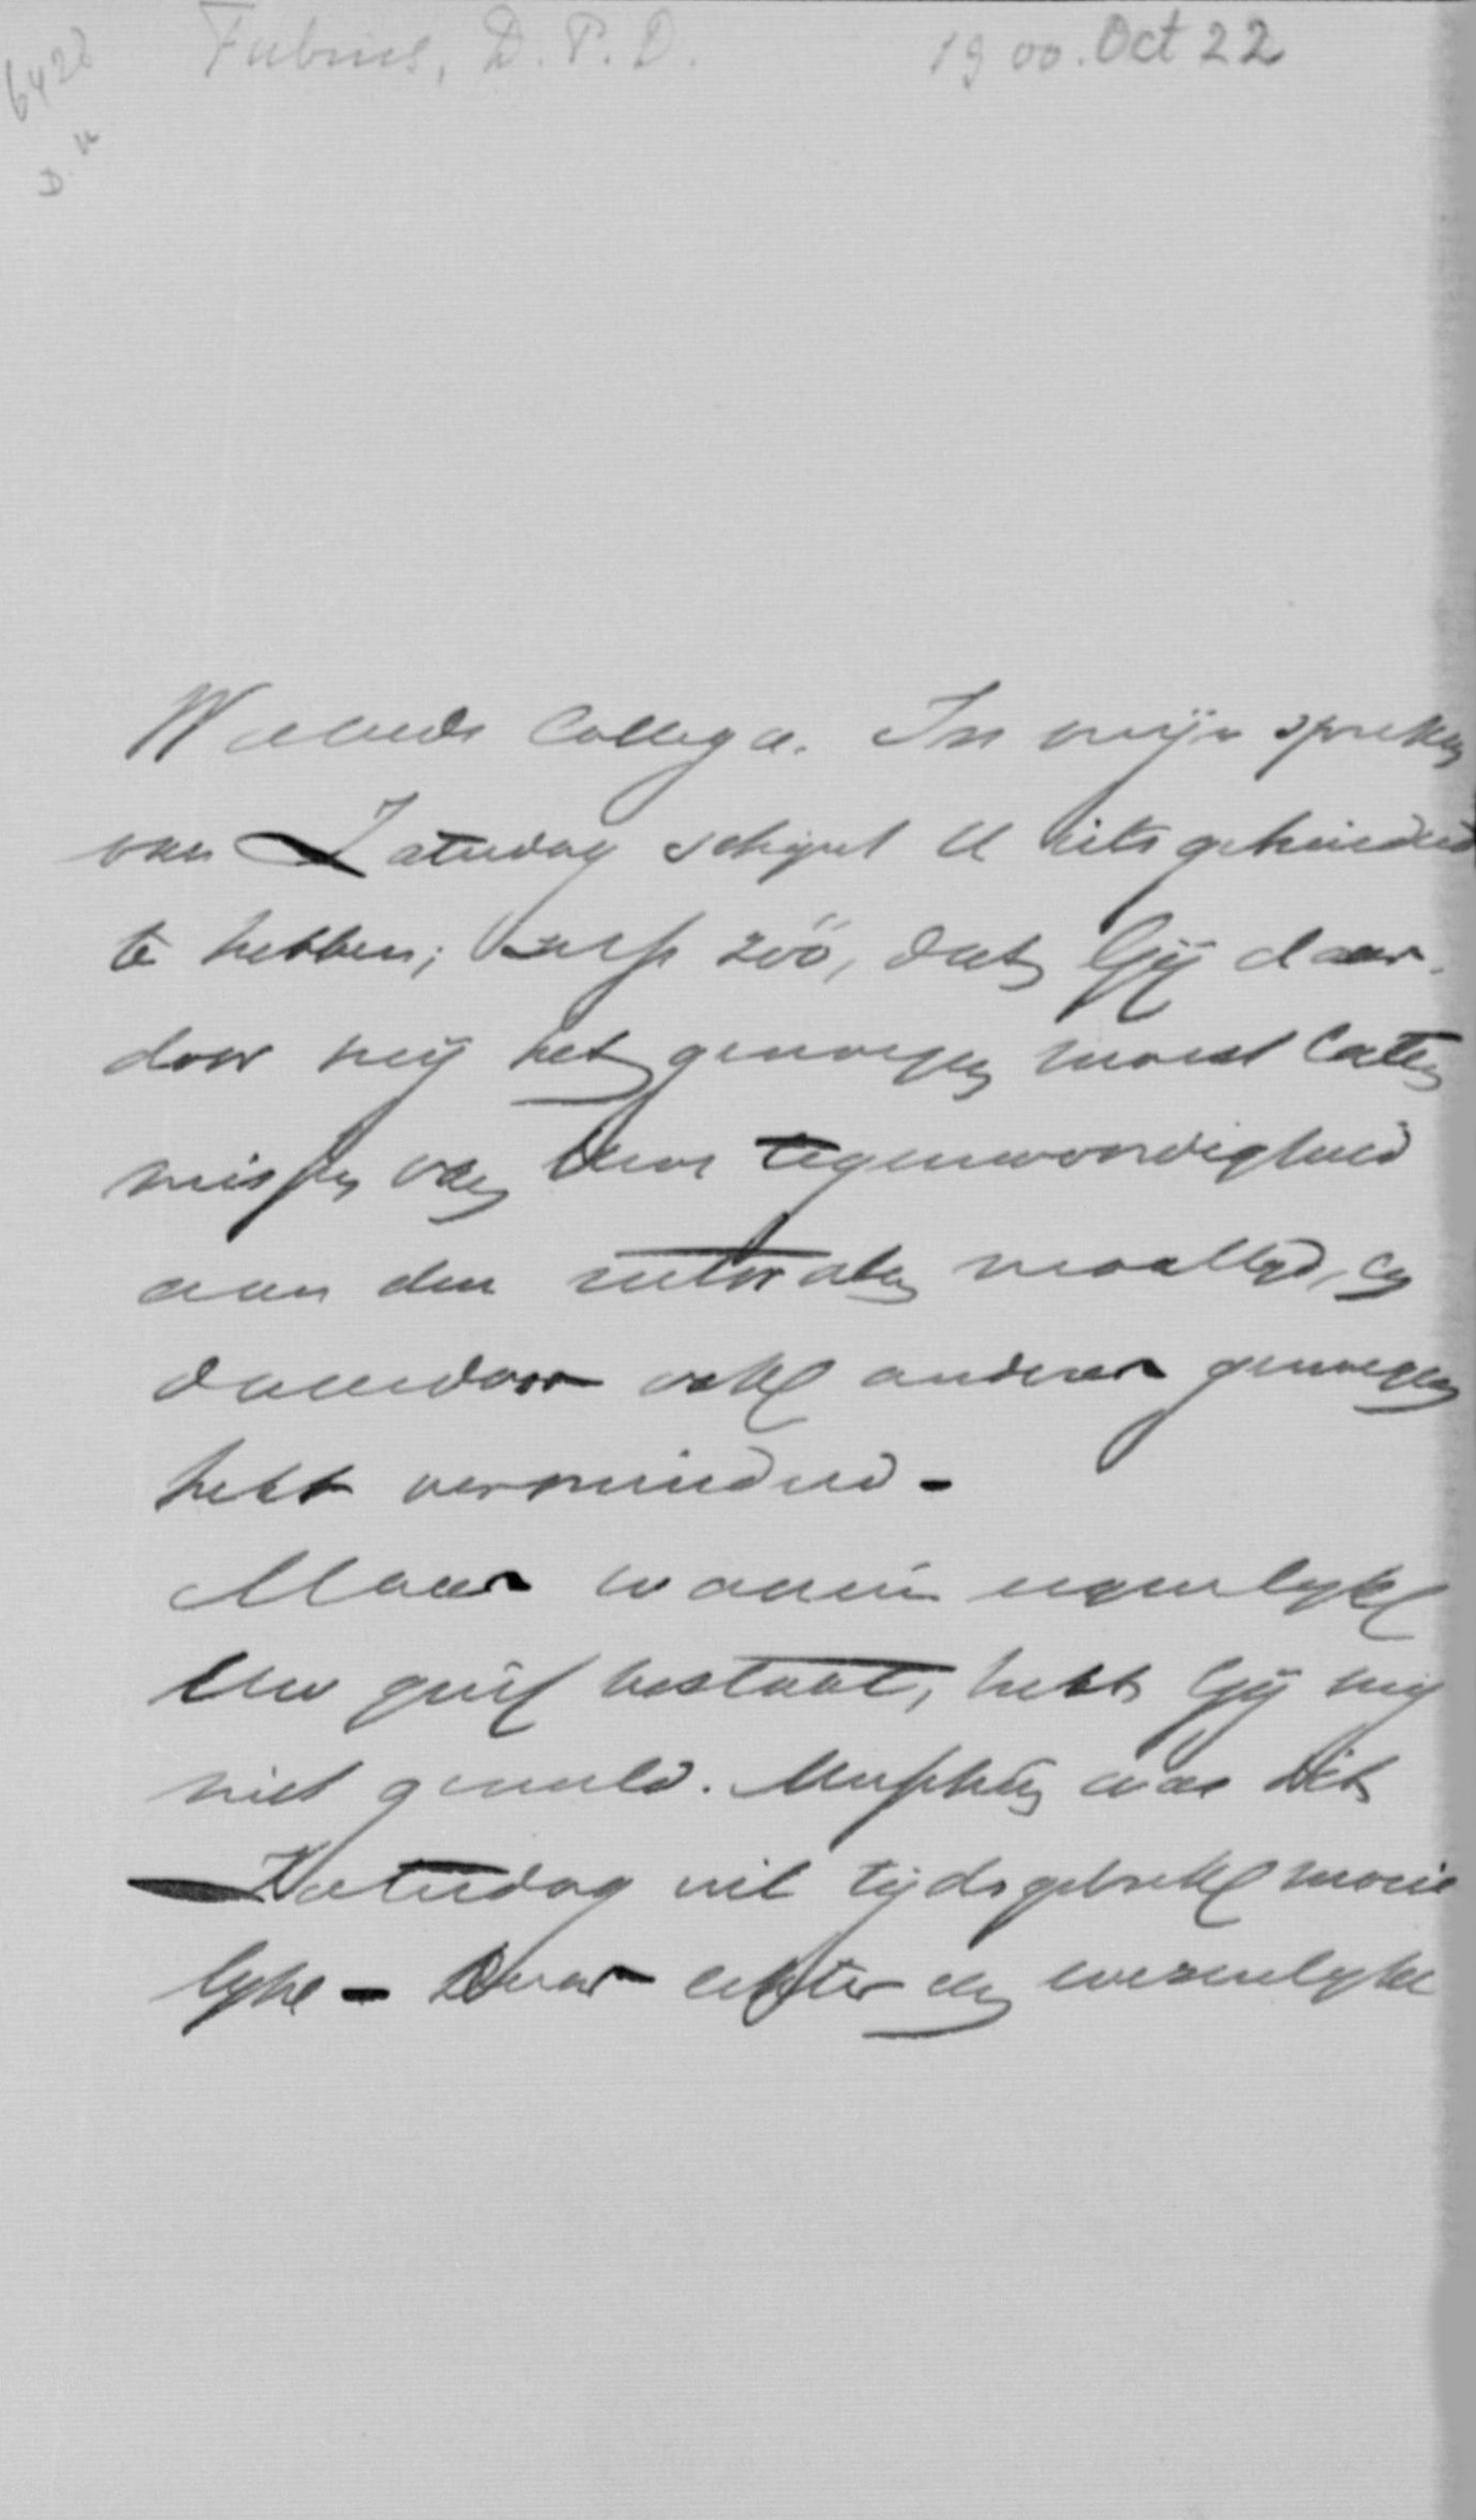 Fabius, D.P.D. 1900. Oct 22
6428
D. U
Waarde Collega. In mijn spreken
van Zaturdag schijnt U iets gehinderd
te hebben; zelfs zóó, dat Gij daar-
door mij het genoegen moest laten
missen van Uwe tegenwoordigheid
aan den maaltijd, en
daardoor ook anderer genoegen
hebt verminderd.
Maar waarin eigenlijk
Uw grief bestaat, hebt Gij mij
niet gemeld. Misschien was dit
Zaturdag uit tijdsgebrek moeie
lijk - Daar echter een wezenlijke